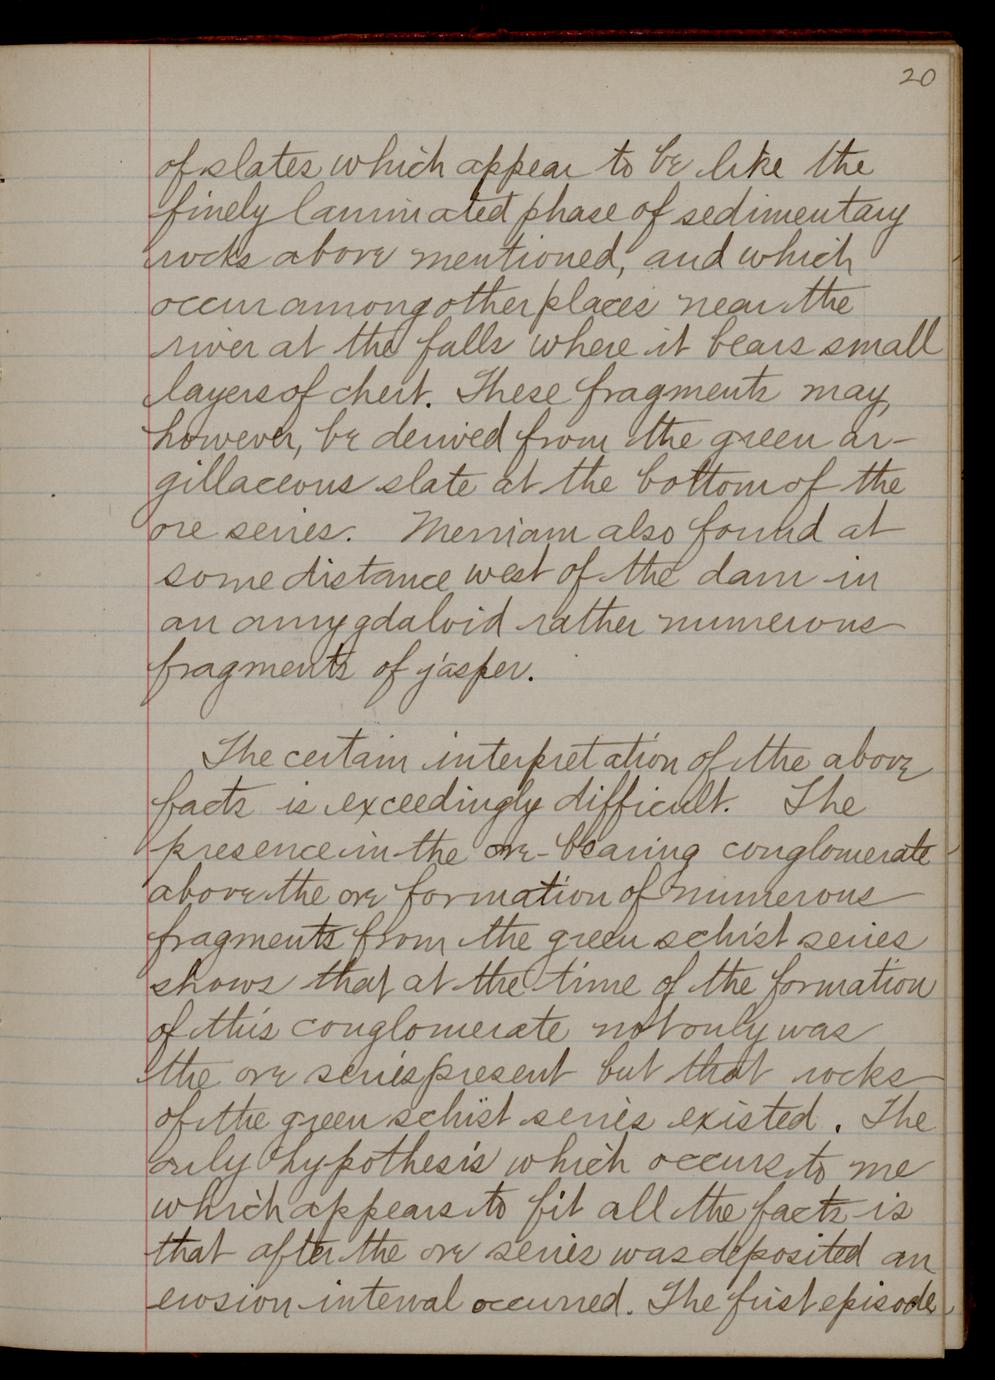 20
of slates which appear to be like the
finely laminated phase of sedimentary
rocks above mentioned, and which
occur among other places near the
river at the falls where it bears small
layers of chert. These fragments may,
however, be derived from the green ar-
gillaceous slate at the bottom of the
ore series. Merriam also found at
some distance west of the dam in
an amygdaloid rather numerous
fragments of jasper.
The certain interpretation of the above
facts is exceedingly difficult. The
presence in the ore-bearing conglomerate
above the ore formation of numerous
fragments from the green schist series
shows that at the time of the formation
of this conglomerate not only was
the ore series present but that rocks
of the green schist series existed. The
only hypothesis which occurs to me
which appears to fit all the facts is
that after the ore series was deposited an
erosion interval occurred. The first episode